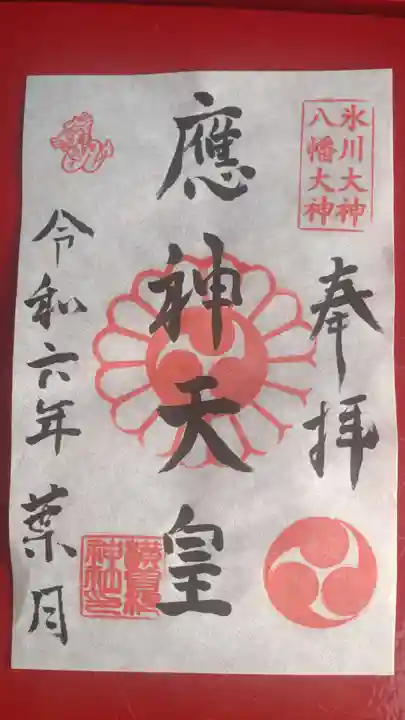 氷川大神
八幡大神
奉拝
應神天皇
令和六年葉月